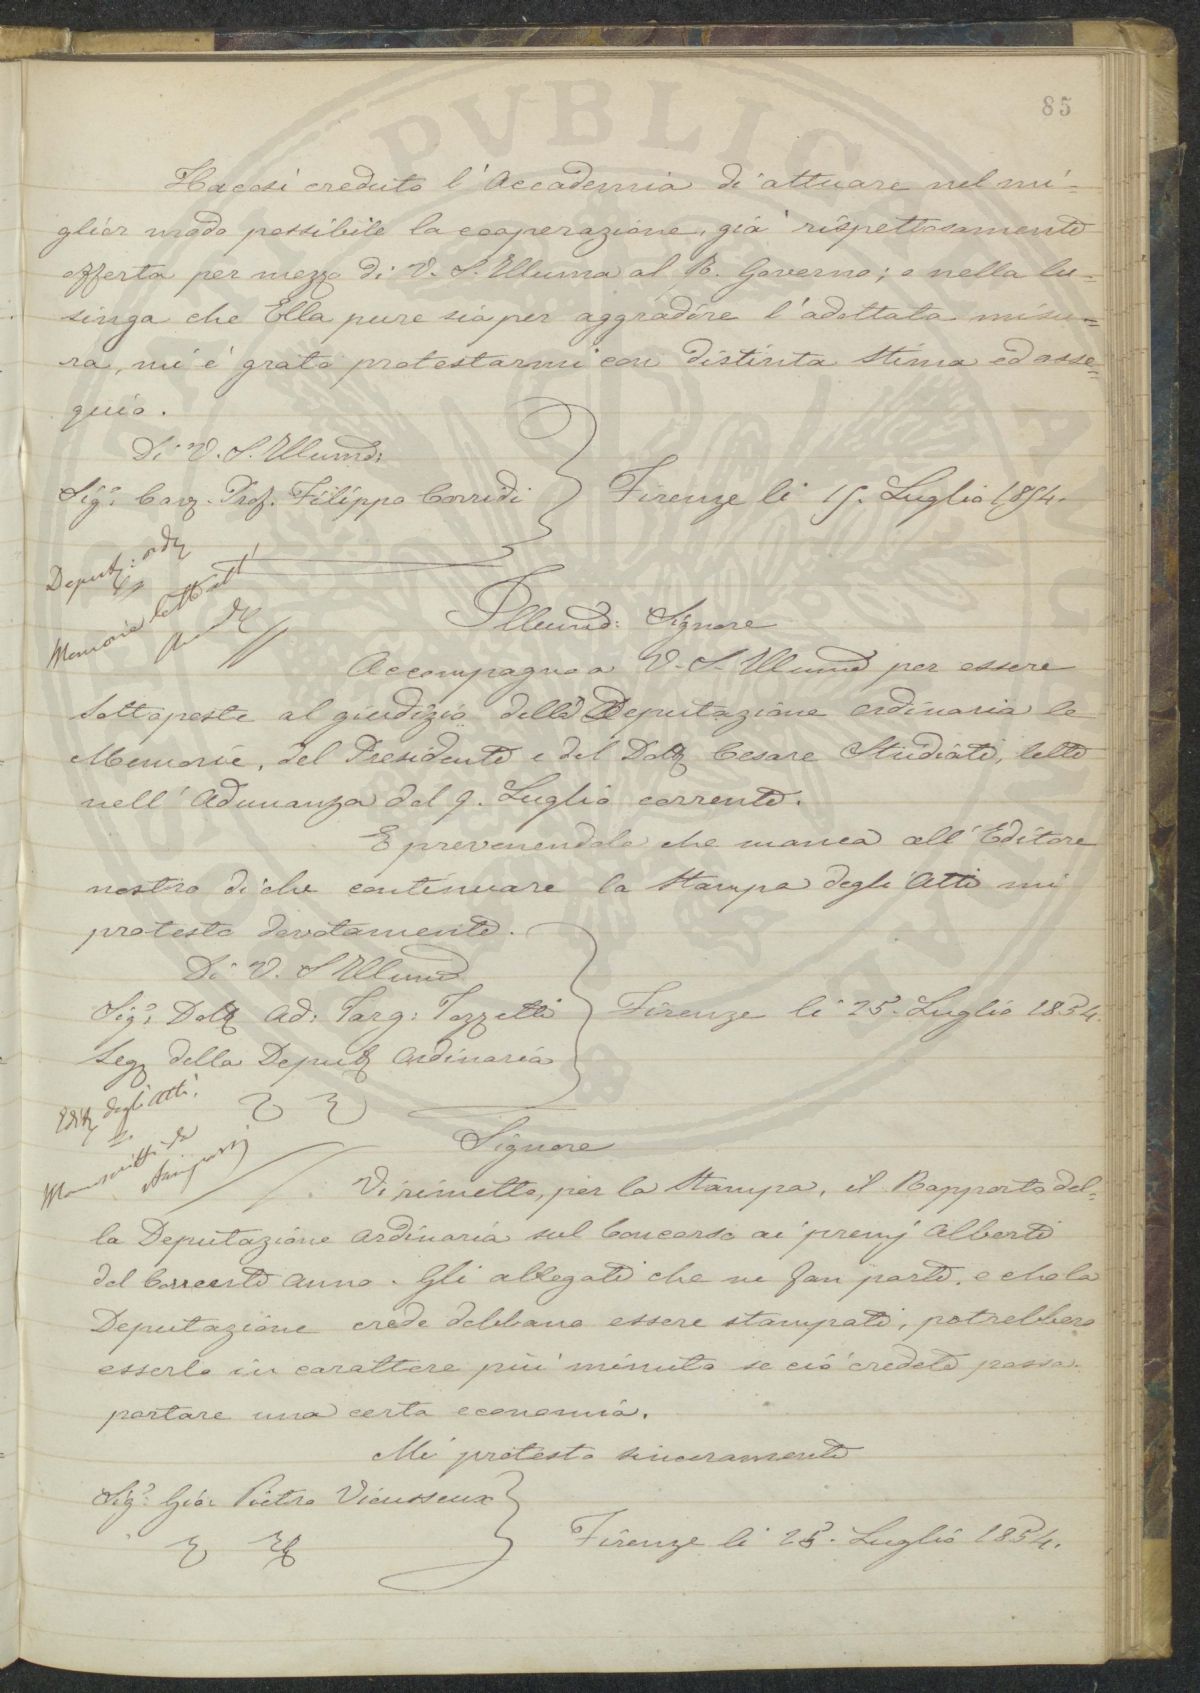 85
Ha così creduto l'Accademia di attuare nel mi-
glior modo possibile la cooperazione, già rispettosamente
offerta per mezzo di V. S. Illuma al R. Governo; e nella lu-
singa che Ella pure sia per aggradire l'adottata misu=
ra, mi è grato protestarmi con distinta stima ed osse=
quio.
Di V. S. Illuma:
Sigr: Cav. Prof. Filippo Corridi
Firenze li 15. Luglio 1854.
Deputaz: ord.
Memorie lette
Illuma: Signore
Accompagno a V. S. Illuma per essere
sottoposte al giudizio della Deputazione ordinaria le
Memorie, del Presidente e del Dott. Cesare Studiati, lette
nell'Adunanza del 9. Luglio corrente.
E prevenendola che manca all'Editore
nostro di che continuare la stampa degli Atti mi
protesto devotamente.
Di V. S Illuma
Sigr: Dott. Ad: Targ: Tozzetti
Seg. della Deput. Ordinaria
Firenze li 25. Luglio 1854.
Edit. degli Atti.
Manoscritti da
stamparsi
Signore
Vi rimetto, per la stampa, il Rapporto del=
la Deputazione ordinaria sul Concorso ai premj Alberti
del Corrente anno. Gli allegati che ne fan parte, e che la
Deputazione crede debbano essere stampati, potrebbero
esserlo in carattere più minuto se ciò credete possa
portare una certa economia.
Mi protesto sinceramente
Sigr: Gio: Pietro Vieusseux
Firenze li 25. Luglio 1854.